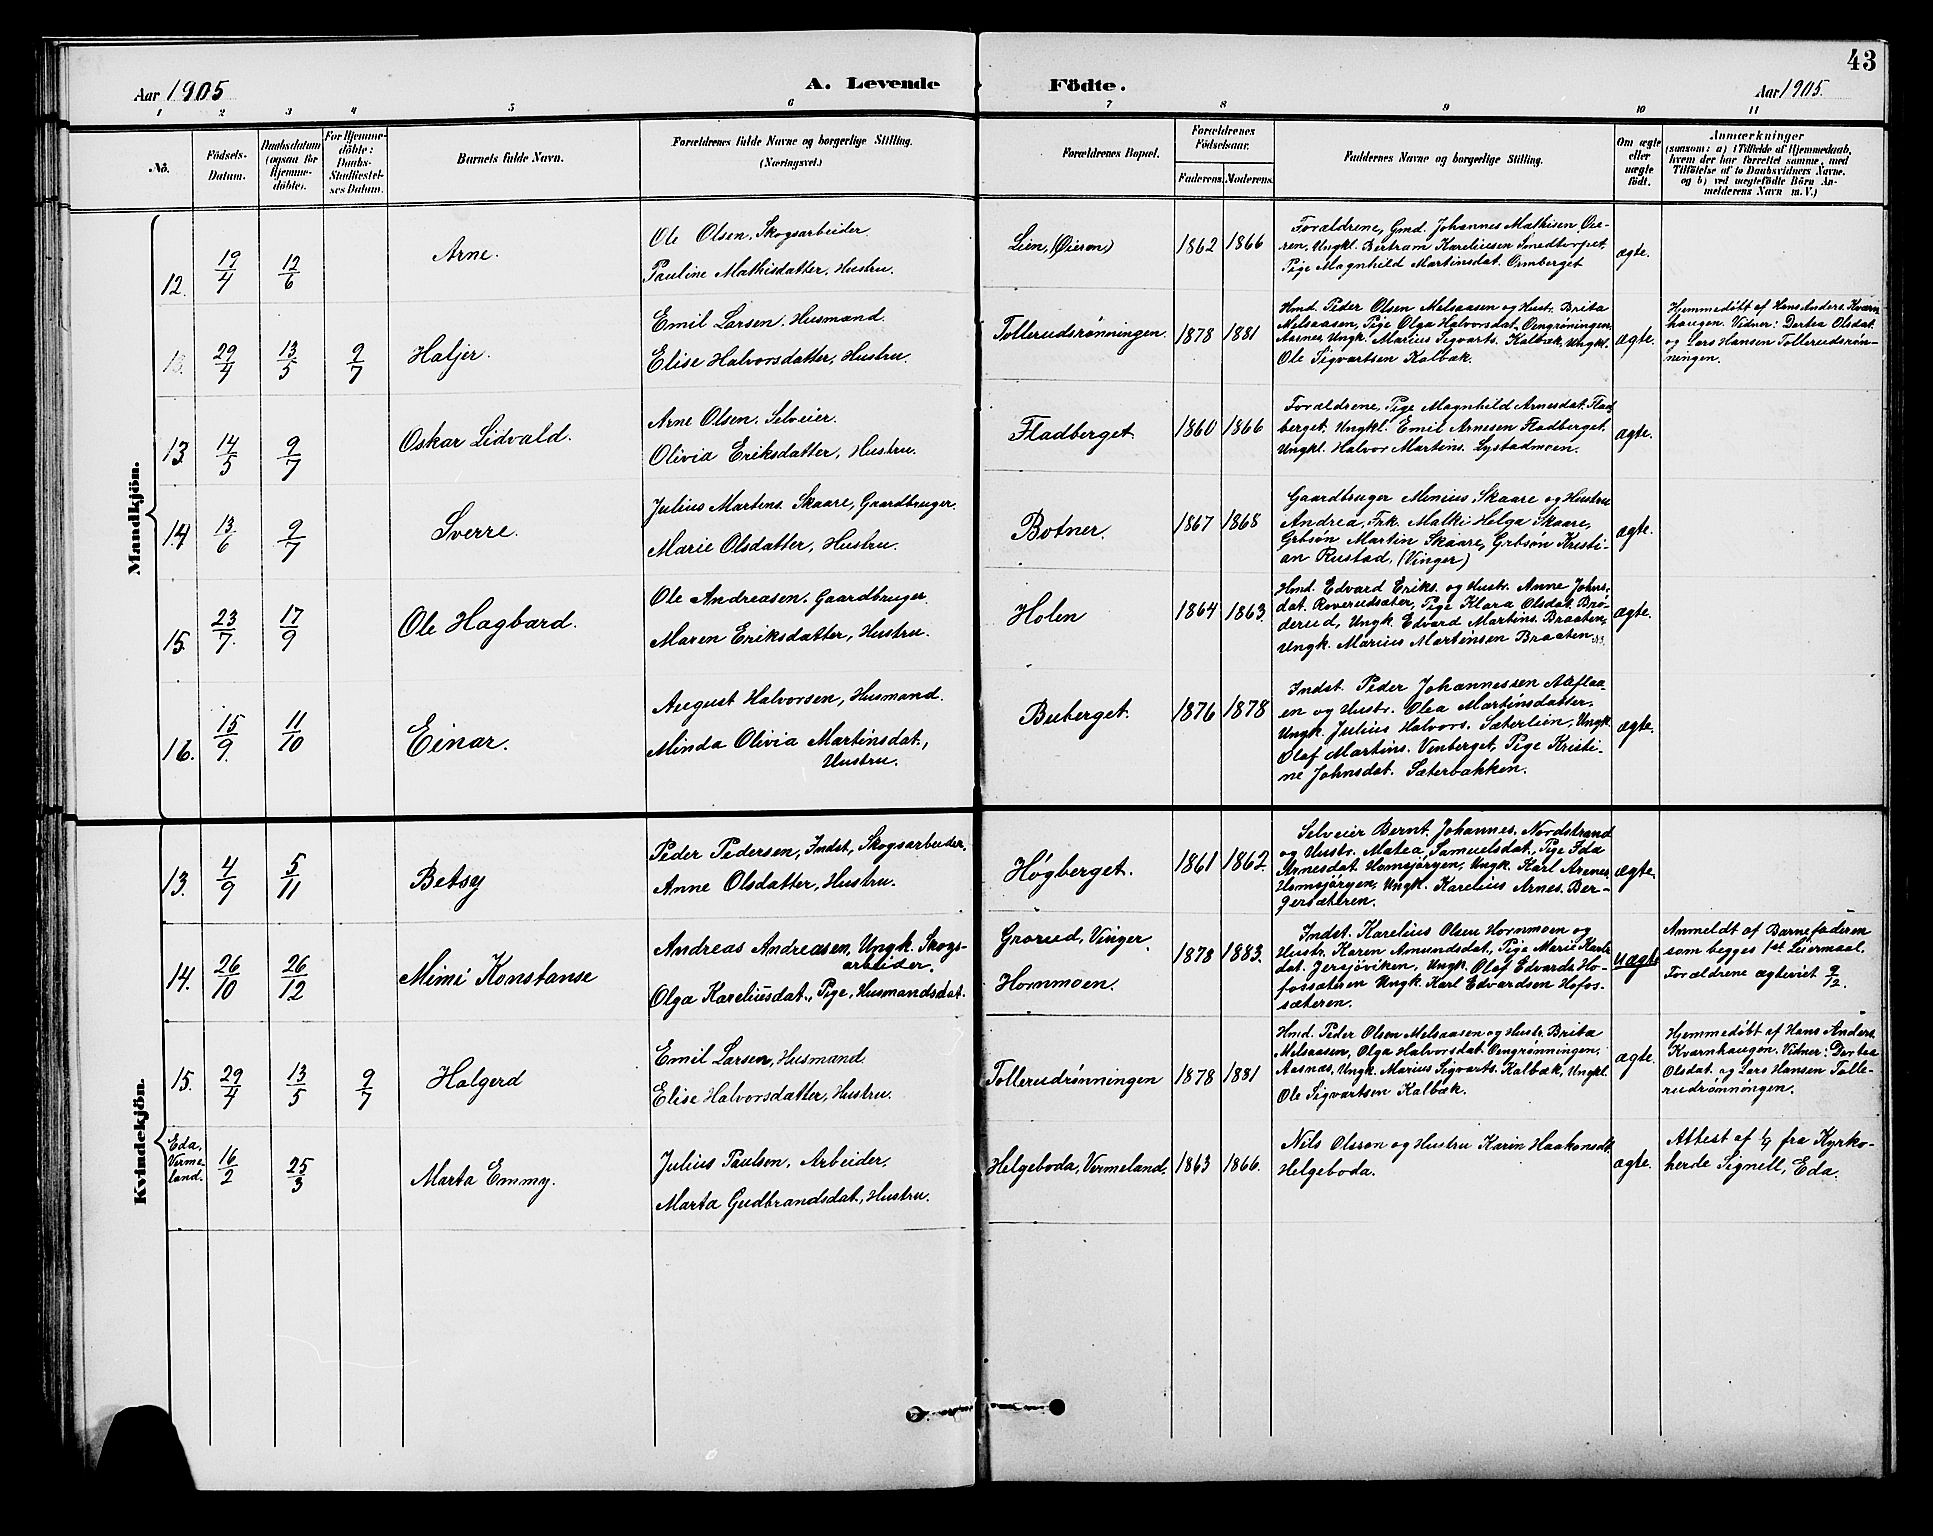 43
Aar 1905
A. Levende Födte.
Aar 1905.
1 2 3 4 5 6 7 8 9 10 11
No.
Födsels-
Datum.
Daabsdatum
(ogsaa for
Hjemme-
döbte).
For Hjemme-
döbte:
Daabs-
Stadfæstel-
ses Datum.
Barnets fulde Navn.
Forældrenes fulde Navne og borgerlige Stilling.
(Næringsvei.)
Forældrenes Bopæl.
Forældrenes
Födselsaar.
Faderens. Moderens.
Faddernes Navne og borgerlige Stilling.
Om ægte
eller
uægte
födt.
Anmærkninger
(saasom: a) i Tilfælde af Hjemmedaab,
hvem der har forrettet samme, med
Tilföielse af to Daabsvidners Navne.
og b) ved uægtefödte Börn An-
melderens Navn m.V.)
Mandkjön.
12. 19/4 12/6
Arne.
Ole Olsen, Skogsarbeider.
Pauline Mathisdatter, Hustru.
Lien, (Øieren)
1862 1866
Forældrene, Gmd. Johannes Mathisen Øie-
ren, Ungkl. Bertram Kareliusen Smedtorpet,
Pige Magnhild Martinsdat. Ormberget
ægte.
29/4 13/5 9/7
Haljer.
Emil Larsen, Husmand.
Elise Halvorsdatter, Hustru.
Tollerudsrønningen.
1878 1881
Hmd. Peder Olsen Melsaasen og Hustr. Brita
Melsaasen, Pige Olga Halvorsdat. Oengrøningen,
Aasnes, Ungk. Marius Sigvarts. Kalbæk, Ungkl.
Ole Sigvartsen Kalbæk.
ægte.
Hjemmedøbt af Hans Anders. Kværn-
haugen. Vidner: Dertea Olsdat.
og Lars Hansen Tollerudsrøn-
ningen.
13 14/5 9/7
Oskar Lidvald.
Arne Olsen, Selveier.
Olivia Eriksdatter, Hustru.
Fladberget.
1860 1866
Forældrene, Pige Magnhild Arnesdat. Flad-
berget, Ungkl. Emil Arnesen Fladberget,
Ungkl. Halvor Martins. Lystadmoen.
ægte.
14 13/6 9/7
Sverre.
Julius Martens. Skaare, Gaardbruger.
Marie Olsdatter, Hustru.
Botner.
1867 1868
Gaardbruger Minius Skaare og Hustru
Andrea, Frk. Malki Helga Skaare,
Grbsøn Martin Skaare, Grbsøn Kristi-
an Rustad, (Vinger)
ægte.
15. 23/7. 17/9
Ole Hagbard.
Ole Andreasen, Gaardbruger.
Maren Eriksdatter, Hustru.
Holen
1864 1863.
Hmd. Edvard Eriks. og Hustr. Anne Johns-
dat. Roverudsæter, Pige Klara Olsdat. Brø-
derud, Ungk. Edvard Martins. Braaten,
Ungk. Marius Martinsen Braaten.
ægte.
16. 15/9. 11/10
Einar.
August Halvorsen, Husmand.
Minda Olivia Martinsdat.,
Hustru.
Buberget.
1876 1878
Indst. Peder Johannessen Alflaa-
en og Hustr. Olea Martinsdatter,
Ungk. Julius Halvors. Sæterleien, Ungk.
Olaf Martins. Venberget, Pige Kristi-
ne Johnsdat. Sæterbakken.
ægte.
Kvindekjön.
13. 4/9 5/11
Betsy
Peder Pedersen, Indst, Skogsarbeider.
Anne Olsdatter, Hustru.
Høgberget.
1861 1862.
Selveier Bernt. Johannes. Nordstrand
og Hustr. Matea Samuelsdat., Pige Ida
Arnesdat. Homsjørgen, Ungk. Karl Arenes.
Homsjørgen, Ungk. Karelius Arnes. Ber-
gersæteren.
ægte.
14. 26/10 26/12
Mimi Konstanse
Andreas Andreasen, Ungk. Skogs-
arbeider.
Olga Kareliusdat., Pige, Husmandsdat.
Grorud, Vinger.
Hornmoen.
1878 1883.
Indst. Karelius Olsen Hornmoen og
Hustr. Karen Amundsdat., Pige Marie Karls-
dat. Jersjøviken, Ungk. Olaf Edvards. Ho-
fossæteren Ungk. Karl Edvardsen Hofos-
sæteren.
uægte
Anmeldt af Barnefaderen
som begges 1st Leiermaal.
Forældrene ægteviet 9/2.
15. 29/4 13/5 9/7
Halgerd
Emil Larsen, Husmand
Elise Halvorsdatter, Hustru.
Tollerudrønningen
1878 1881
Hmd. Peder Olsen Melsaasen og Hustr. Brita
Melsaasen, Olga Halvorsdat. Oengrønningen,
Aasnæs, Ungk. Marius Sigvarts. Kalbæk, Ungkl.
Ole Sigvartsen Kalbæk.
ægte.
Hjemmedøbt af Hans Anders.
Kværnhaugen. Vidner: Dertea
Olsdat. og Lars Hansen Tolle-
rudrønningen.
Eda,
Verme-
land.
16/2 25/3
Marta Emmy.
Julius Paulsen, Arbeider.
Marta Gudbrandsdat., Hustru.
Helgeboda, Vermeland.
1863 1866.
Nils Olsson og Hustru Karin Haakonsdt.
Helgeboda.
ægte.
Attest af 1/9 fra Kyrko-
herde Signell, Eda.